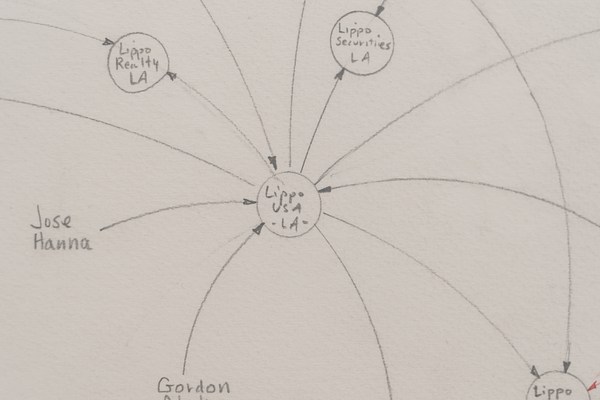 Lippo
Realty
LA
Lippo
Securities
LA
Lippo
USA
-LA-
Jose
Hanna
Gordon
Lippo